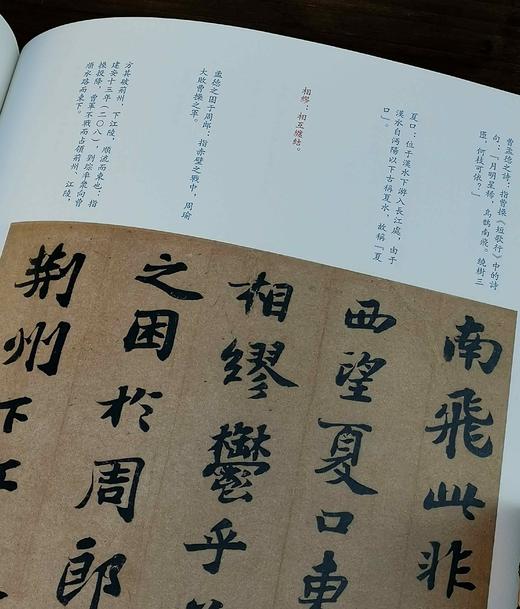 曹孟德之詩：指曹操《短歌行》中的詩
句：「月明星稀，烏鵲南飛。繞樹三
匝，何枝可依？」
夏口：位于漢水下游入長江處，由于
漢水自沔陽以下古稱夏水，故稱「夏
口」。
相繆：相互纏結。
孟德之困于周郎：指赤壁之戰中，周瑜
大敗曹操之軍。
方其破荊州，下江陵，順流而東也：指
建安十三年（二〇八），劉琮率衆向曹
操投降，曹軍不戰而占領荊州、江陵，
順水路而東下。
南飛此非
西望夏口東
相繆鬱乎
之困於周郎
荊州下江